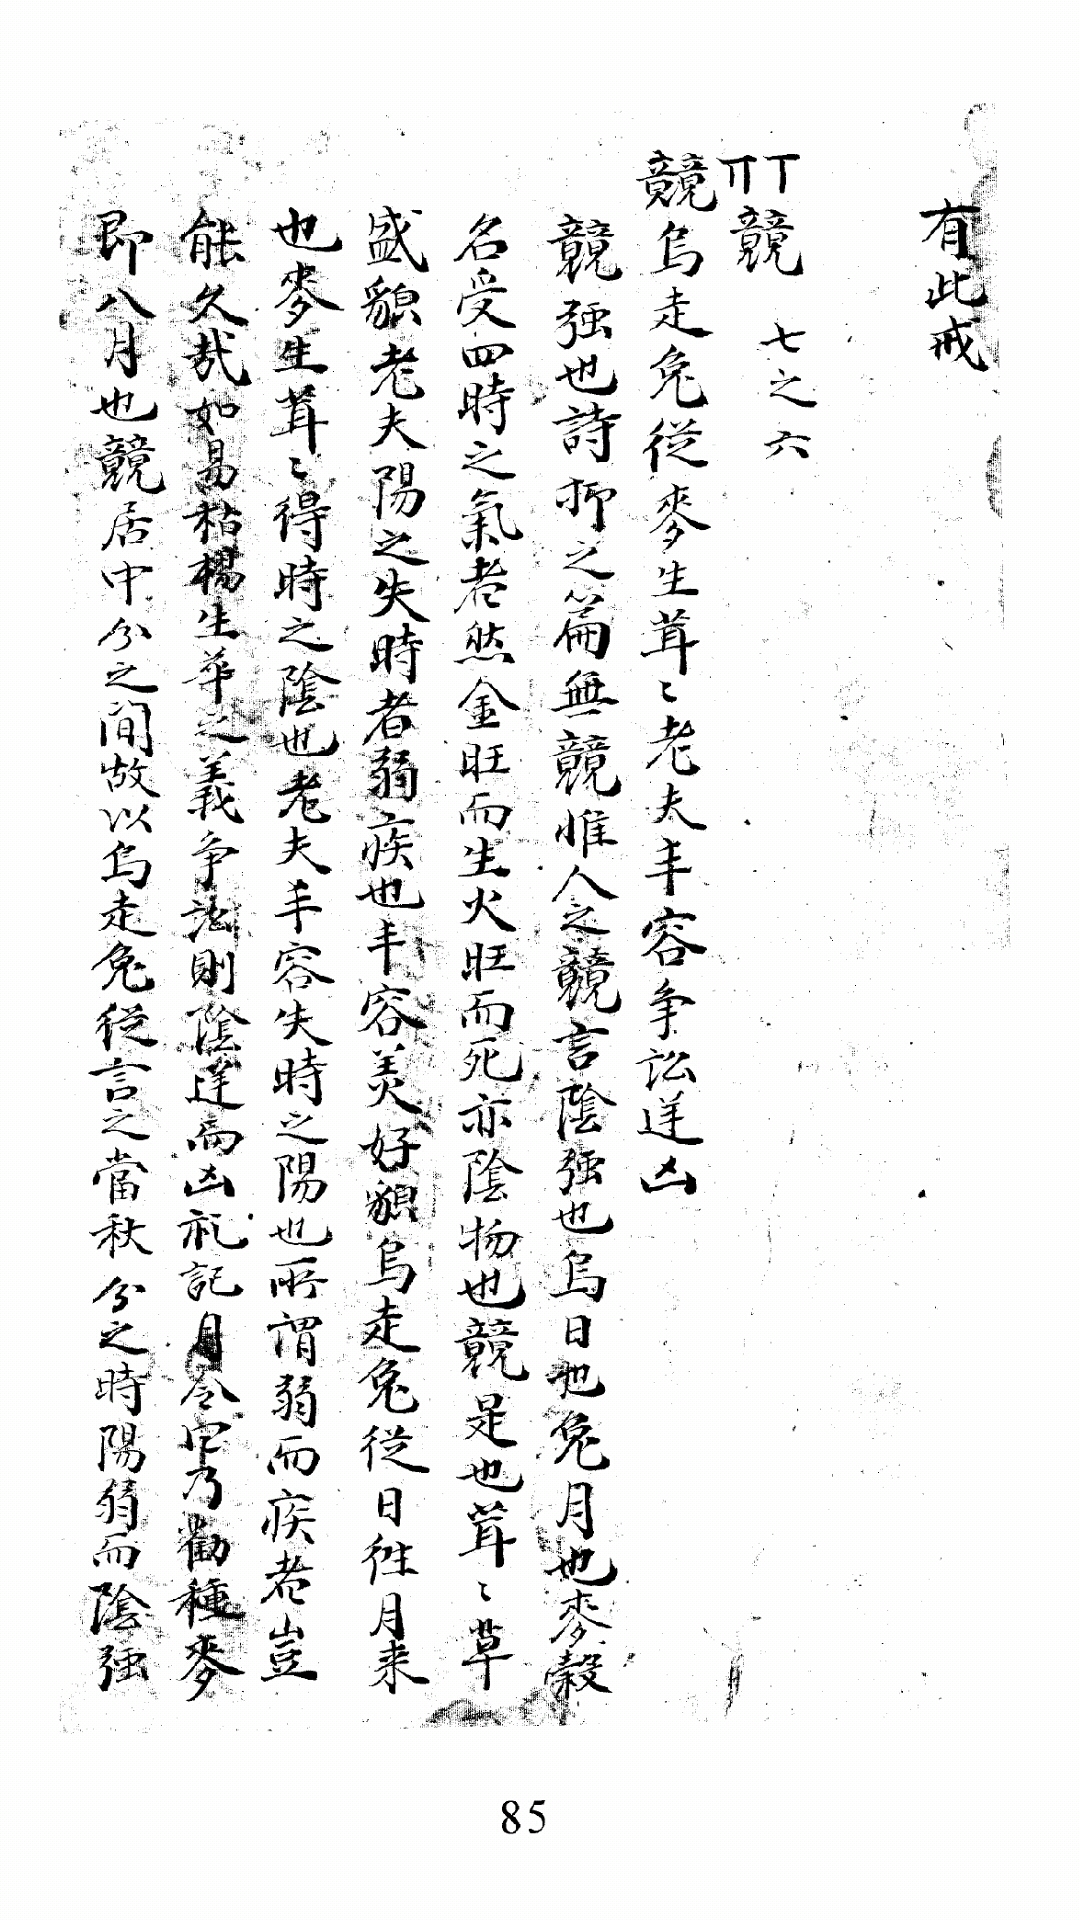 有此戒
丅丌競 七之六
競烏走兔從麥生茸〻老夫丰容争訟逆凶
競强也詩抑之篇無競惟人之競言陰强也烏日也兔月也麥穀
名受四時之氣者然金旺而生火旺而死亦陰物也競是也茸〻草
盛貌老夫陽之失時者弱疾也丰容美好貌烏走兔從日徃月来
也麥生茸〻得時之陰也老夫丰容失時之陽也所謂弱而疾者豈
能久哉如易枯楊生華之義争訟則陰逆而凶礼記月令乃勸種麥
即八月也競居中分之間故以烏走兔從言之當秋分之時陽弱而陰强
85